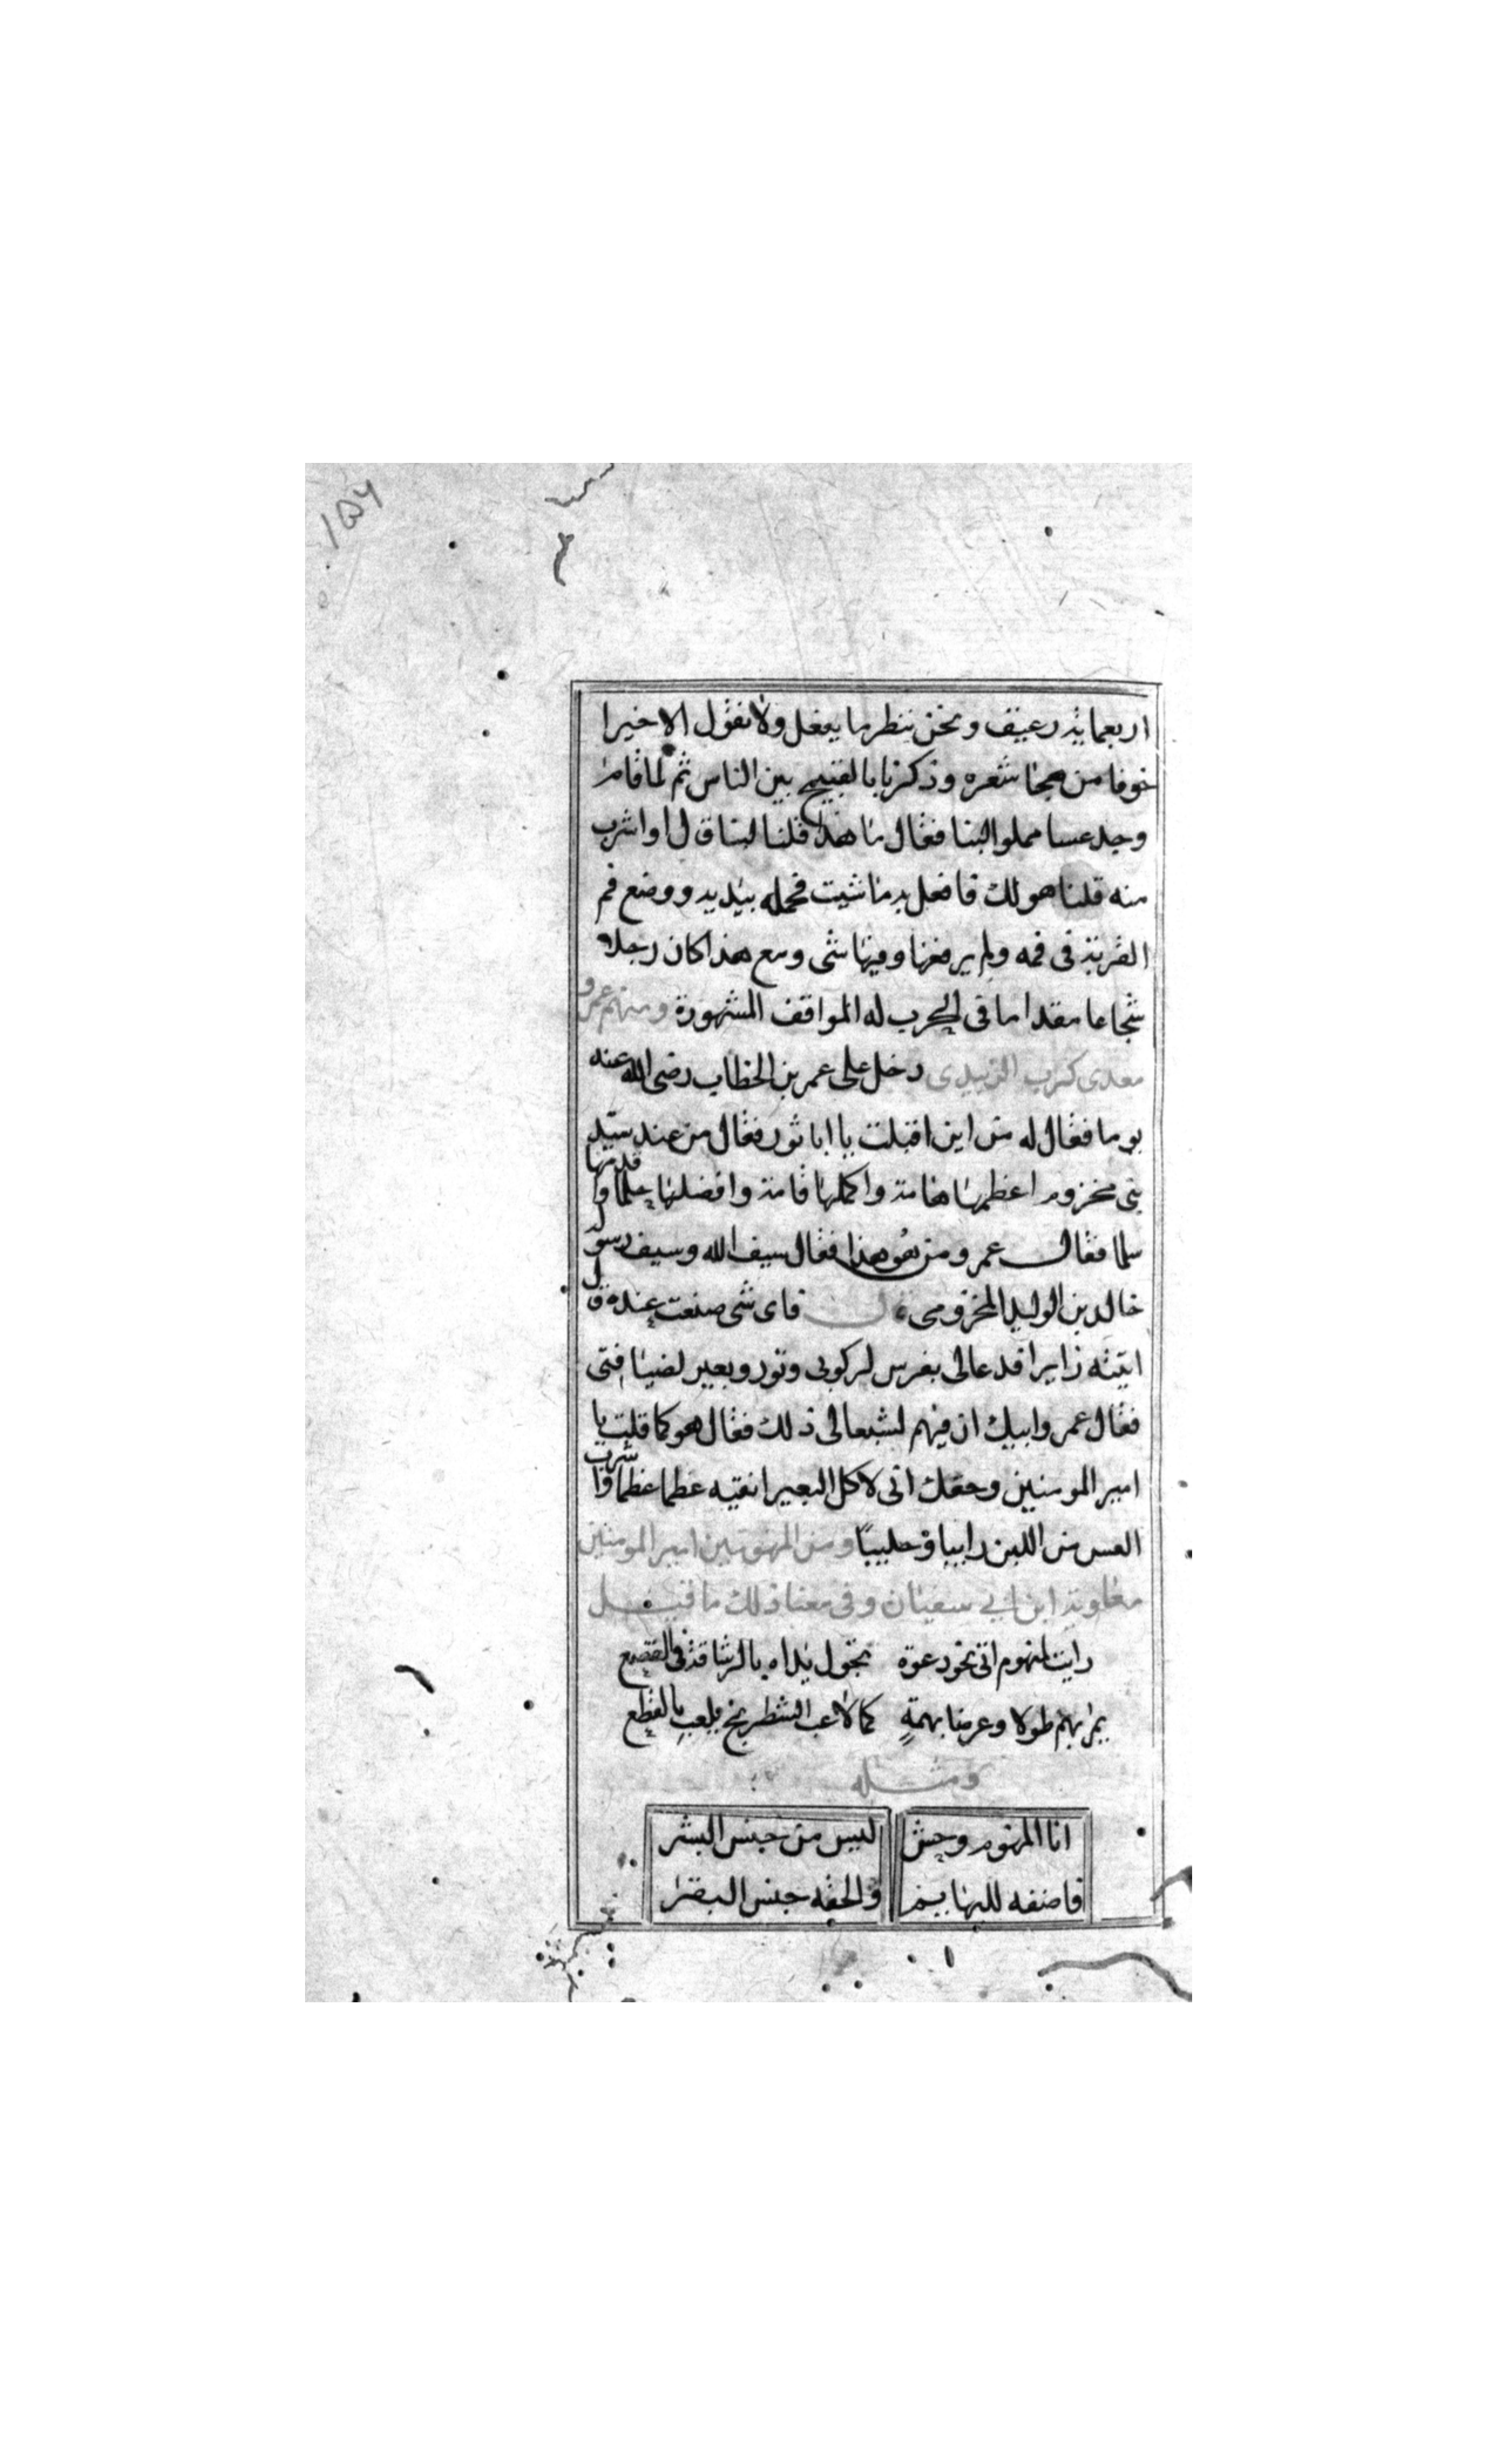 ١٥٦
اربعماية رغيف ونحن ننظر ما يفعل ولا نقول الا خيرا
خوفا من هجا شعره وذكرنا بالقبيح بين الناس ثم لما قام
وجد عسا مملوا لبنا فقال ما هذا قلنا لبنا قال اواشرب
منه قلنا هو لك فافعل به ما شيت فحمله بيديه ووضع فم
القربة فى فمه ولم يرفعها وفيها شى ومع هذا كان رجلا
شجاعا مقداما فى الحرب له المواقف المشهورة ومنهم عمرو
معدى كرب الزبيدى دخل على عمر بن الخطاب رضى الله عنه
يوما فقال له من اين اقبلت يا ابا ثور فقال من عند سيد
بنى مخزوم اعظمها هامة واكملها قامة وافضلها حلما واقدمها
سلما فقال عمر ومن هو هذا فقال سيف الله وسيف رسوله
خالد بن الوليد المخزومى قال فاى شى صنعت عنده قال
اتيته زايرا فدعالى بفرس لركوبى وثور وبعير لضيافتى
فقال عمر وابيك ان فيهم لشبعا لى ذلك فقال هو كما قلت يا
امير المومنين وحقك انى لاكل البعير انقيه عظما عظما واشرب
العس من اللبن رايبا وحليبا ومن المنهومين امير المومنين
معاوية ابن ابي سفيان وفى معنا ذلك ما قيل
رايت المنهوم اتى نحو دعوة تجول يداه بالرشاقة فى القصع
يمر بهم طولا وعرضا بهمة كما لاعب الشطرنج يلعب بالقطع
ومثله
انا المنهوم وحش ليس من جنس البشر
فاضفه للبهايم والحقه جنس البقر